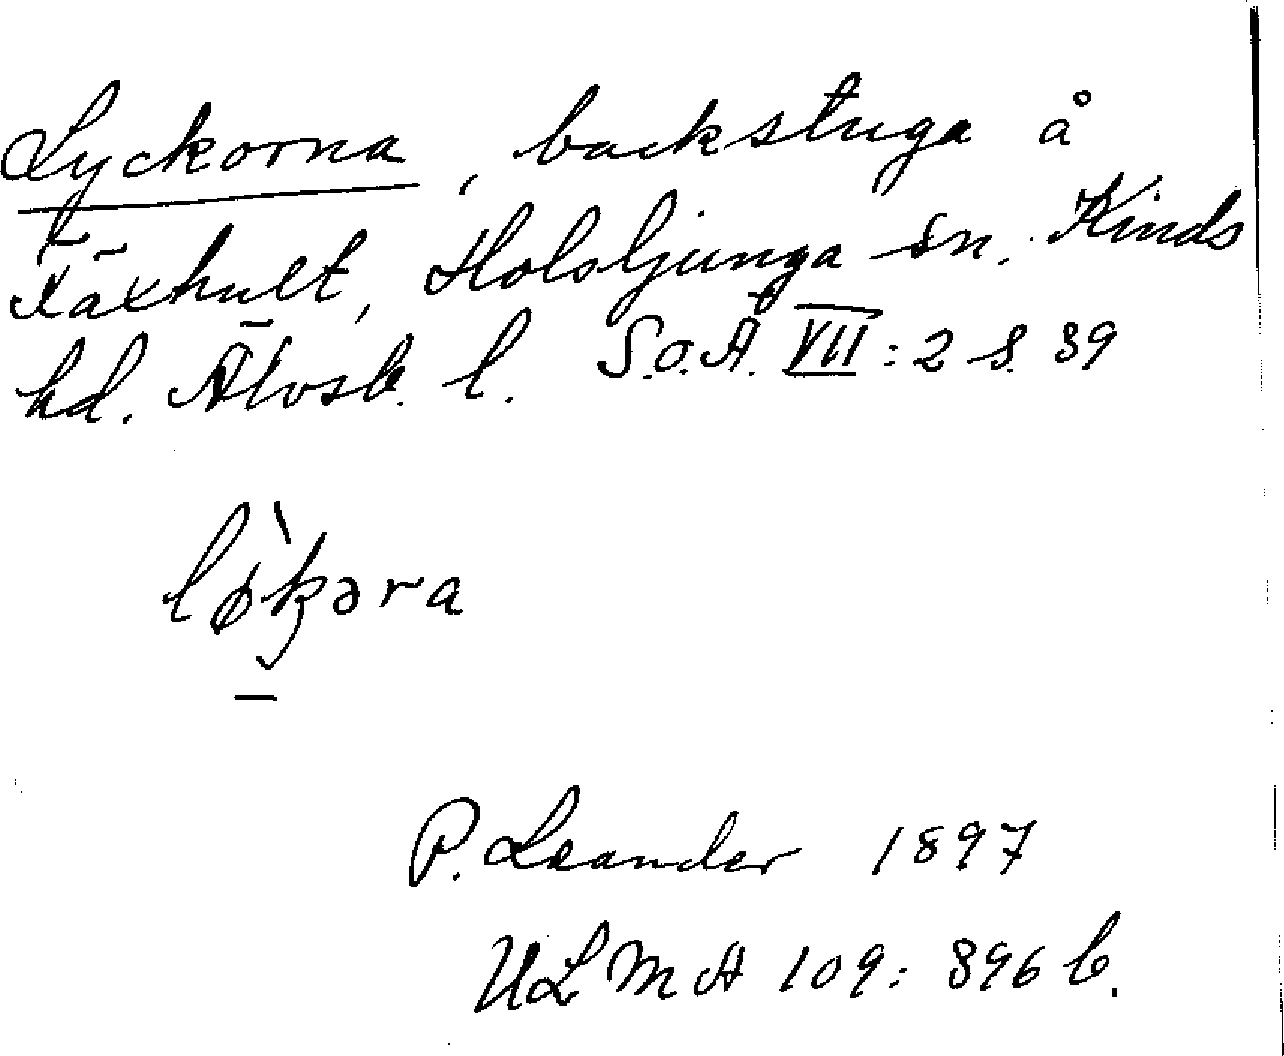 Lyckorna, backstuga å
Fäxhult, Holsljunga sn. Kinds
hd. Älvsb. l. S.O.Ä. VII:2 s. 89
løkəra
P. Leander 1897
ULMA 109: 896 b.